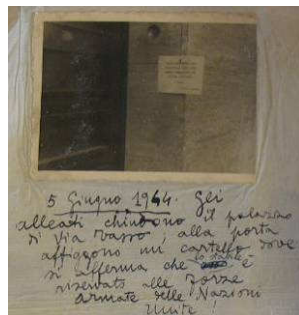 5 Giugno 1944. Gli
alleati chiudono il palazzo
di Via Tasso, alla porta
affiggono un cartello dove
si afferma che lo stabile è
riservato alle Forze
Armate delle Nazioni
Unite